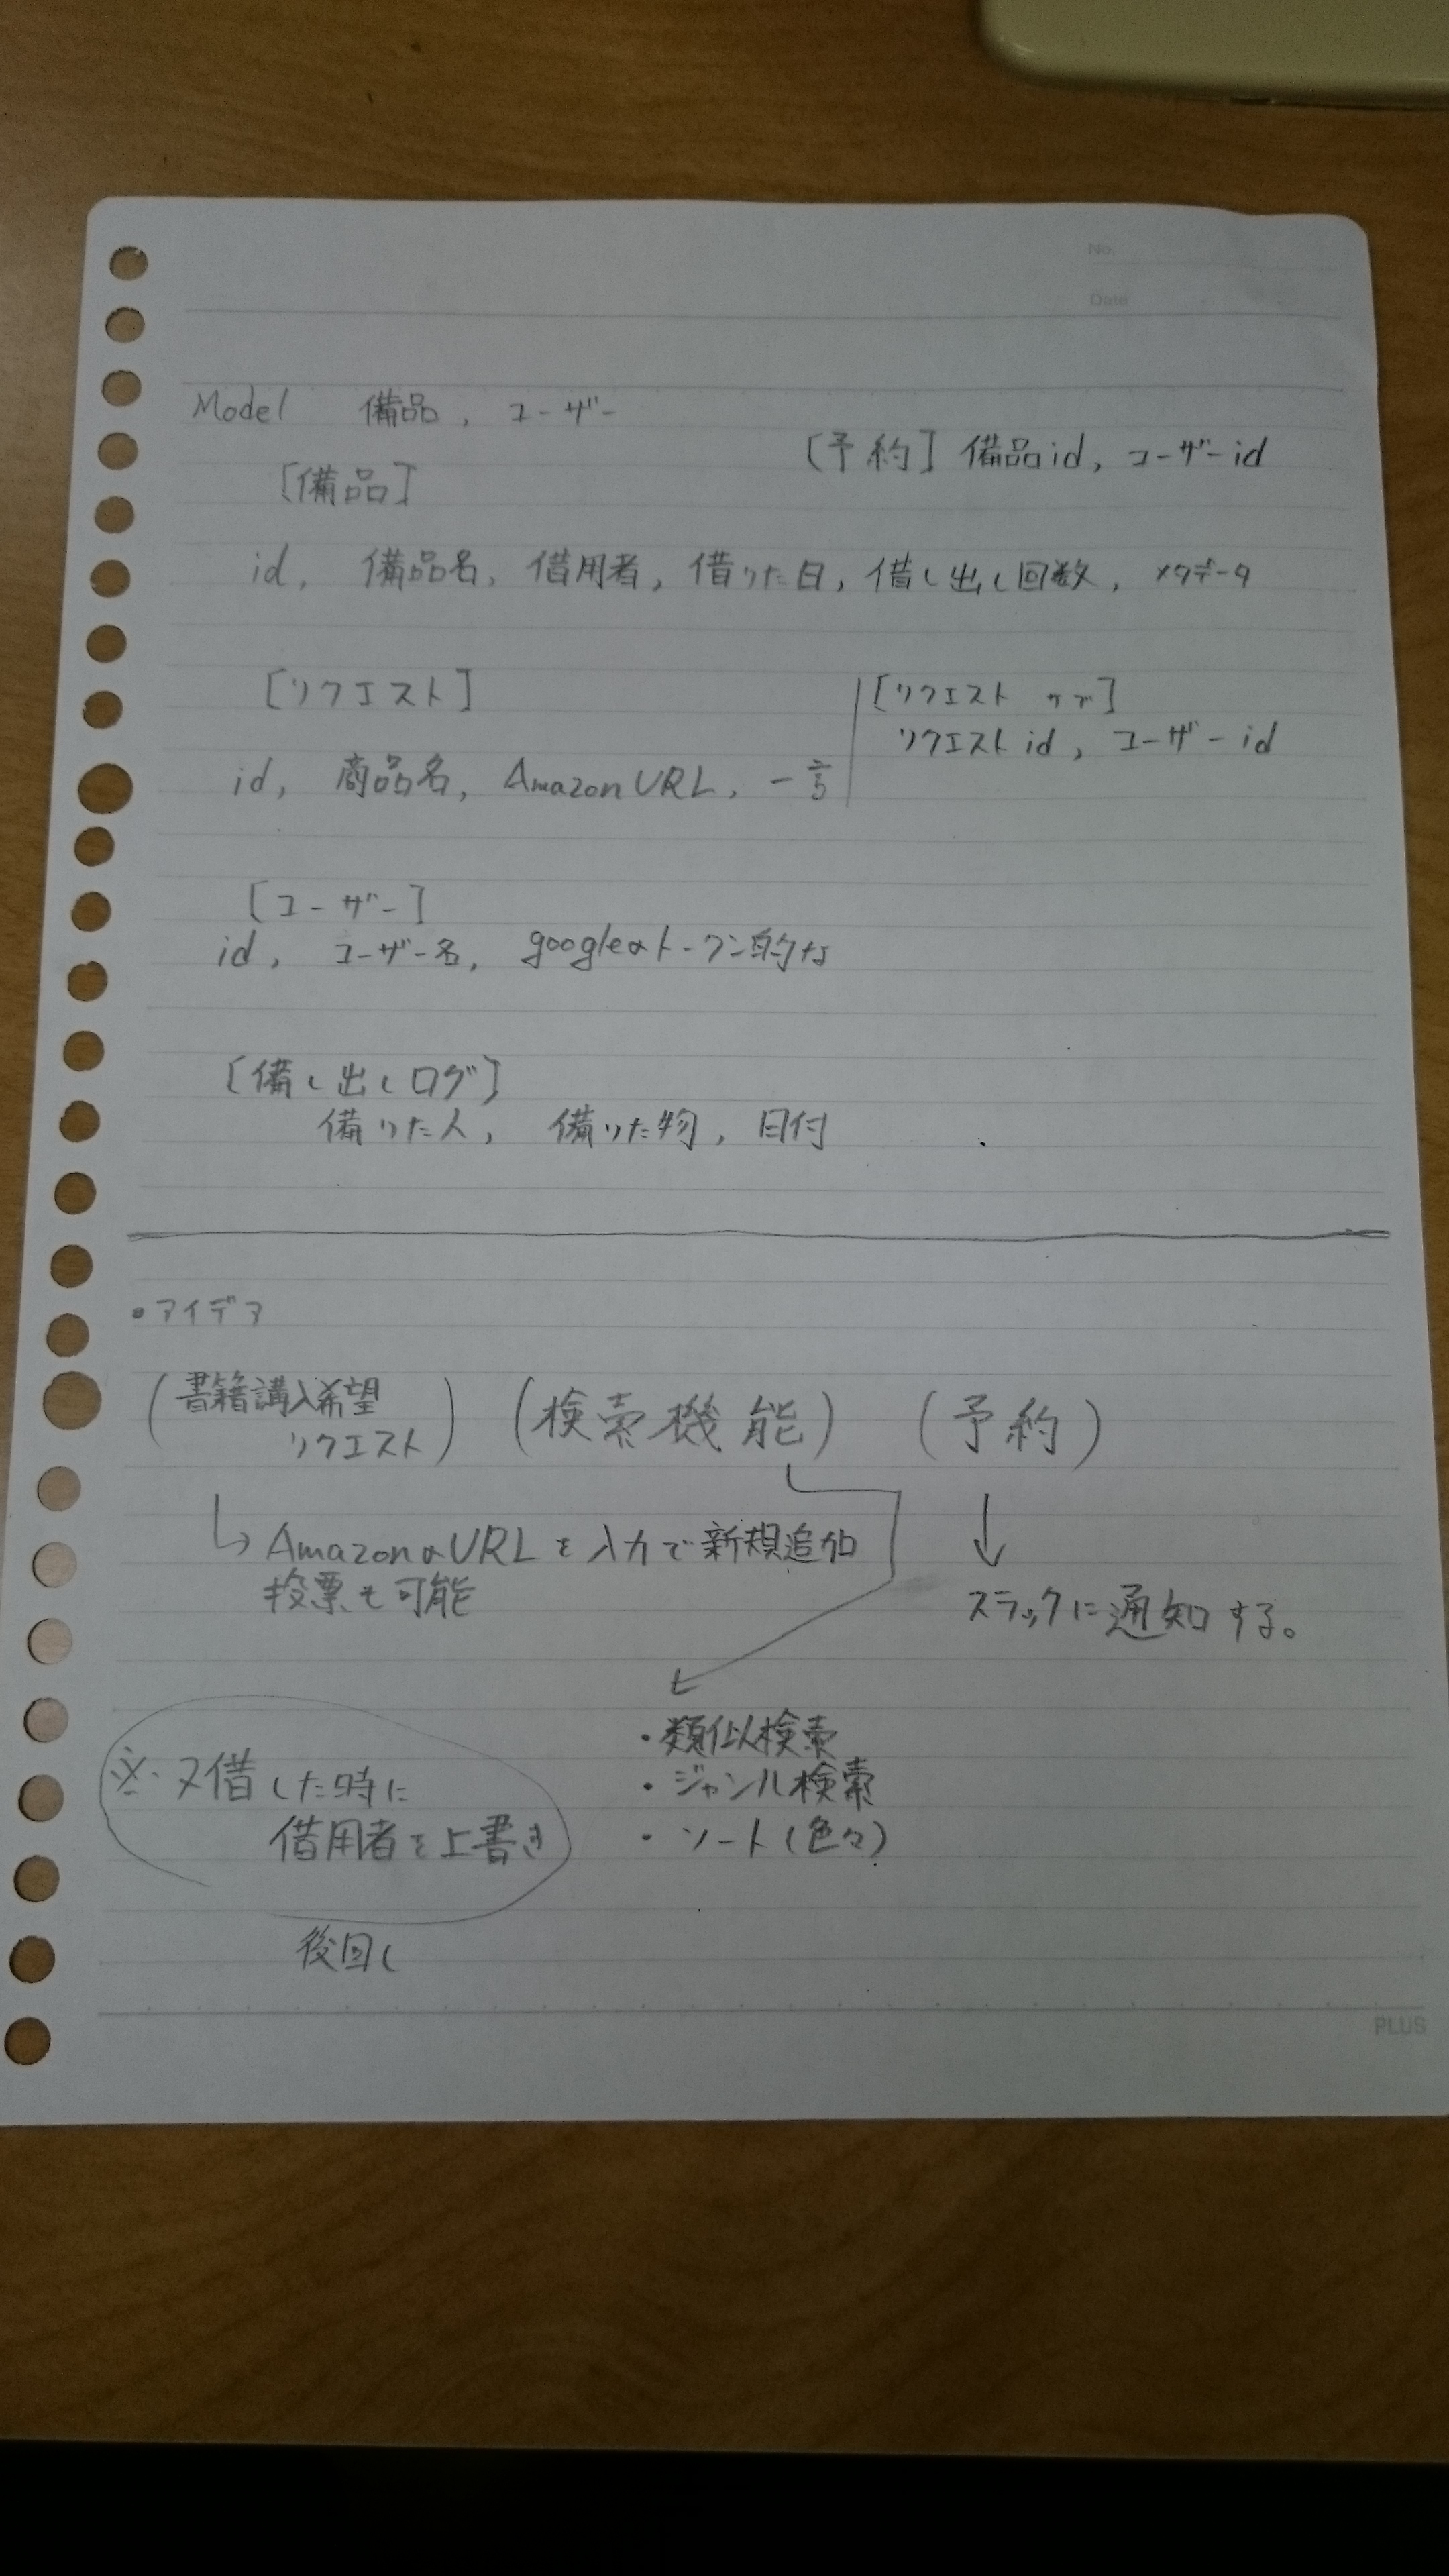 No.
Date
Model 備品, ユーザー
[予約] 備品id, ユーザーid
[備品]
id, 備品名, 借用者, 借りた日, 借し出し回数, メタデータ
[リクエスト]
id, 商品名, Amazon URL, 一言
[リクエスト サブ]
リクエスト id, ユーザーid
[ユーザー]
id, ユーザー名, googleのトークン的な
[備し出しログ]
備りた人, 備りた物, 日付
•アイデア
(書籍講入希望
リクエスト)
(検索機能)
(予約)
AmazonのURLを入力で新規追加
投票も可能
スラックに通知する。
・類似検索
・ジャンル検索
・ソート(色々)
※・又借した時に
借用者を上書き
後回し
PLUS